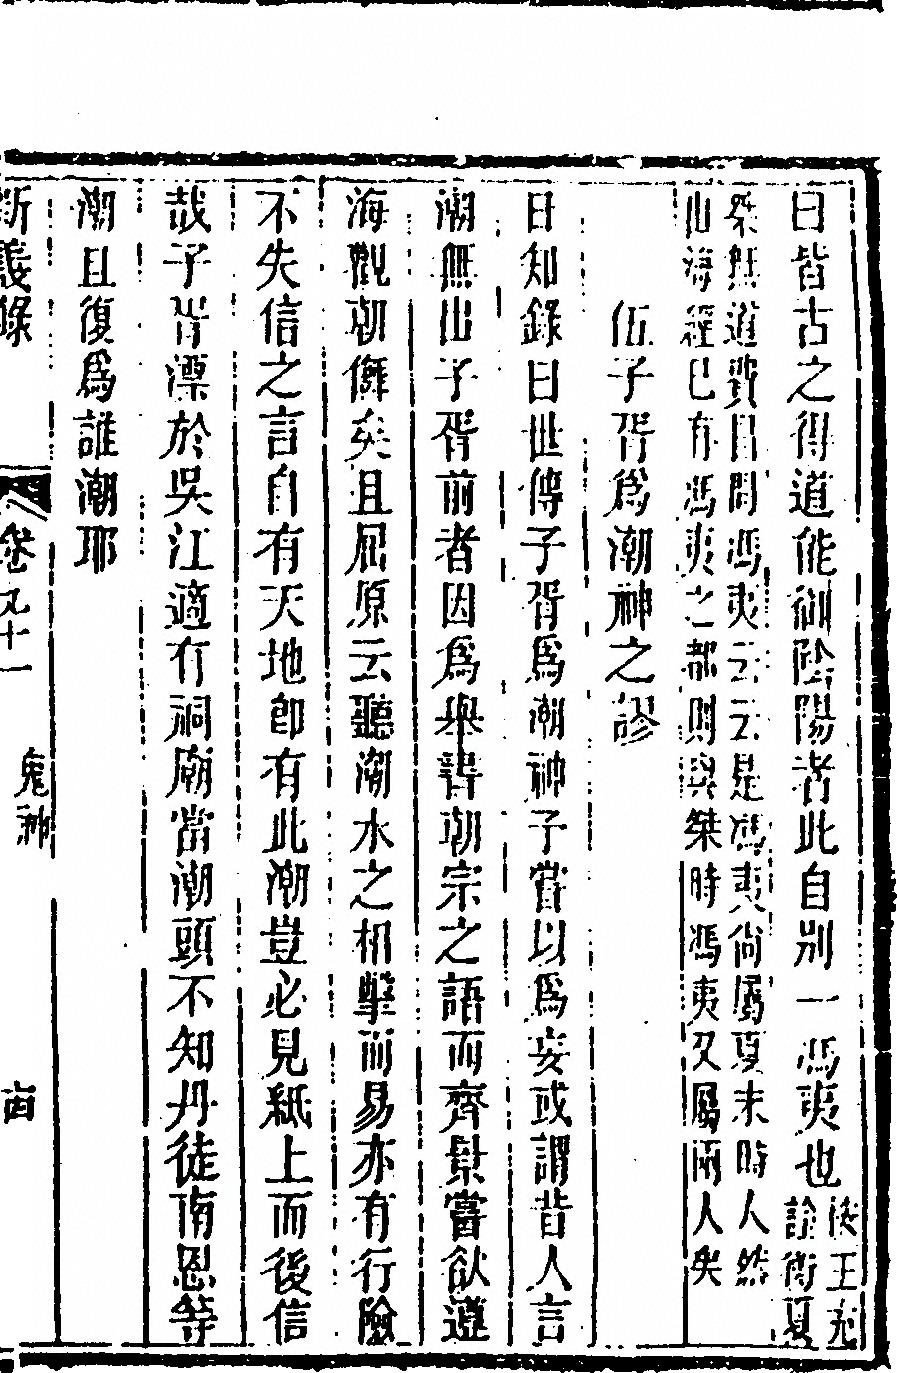 曰皆古之得道能御陰陽者此自別一馮夷也按王充
論衡夏
桀無道費昌問馮夷云云是馮夷尚屬夏末時人然
山海經已有馮夷之都則與桀時馮夷又屬兩人矣
伍子胥為潮神之謬
日知錄曰世傳子胥爲潮神子嘗以爲妄或謂昔人言
潮無出子胥前者因爲舉書朝宗之語而齊景嘗欲遵
海觀朝儛矣且屈原云聽潮水之相擊而易亦有行險
不失信之言自有天地卽有此潮豈必見紙上而後信
哉子胥漂於吳江適有祠廟當潮頭不知丹徒南恩等
潮且復爲誰潮耶
新義錄
卷九十一
鬼神